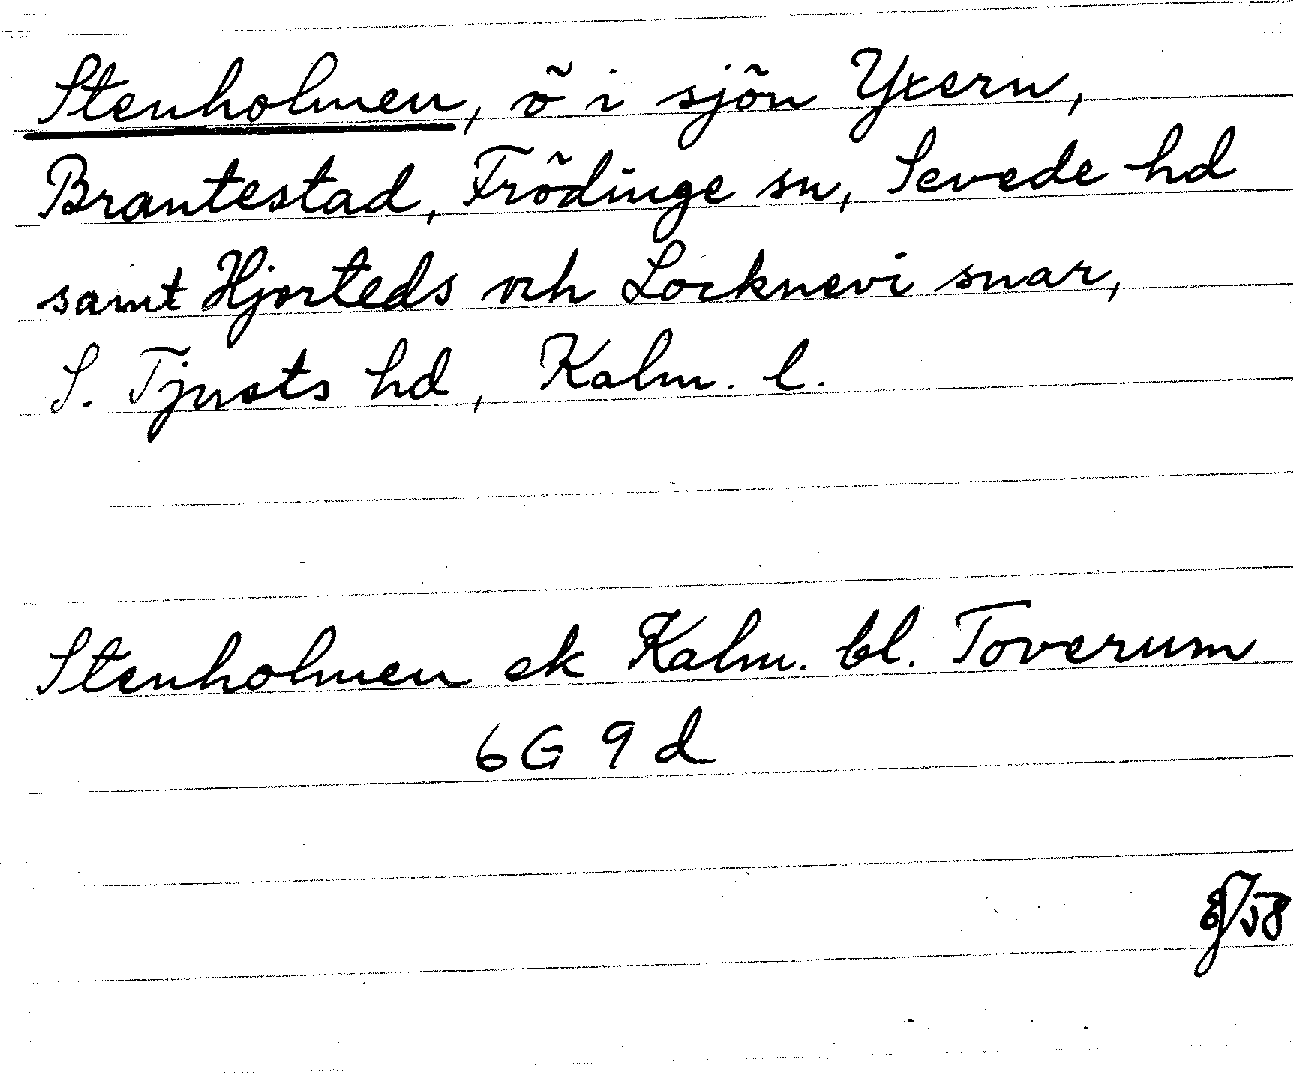 Stenholmen, ö i sjön Yxern,
Brantestad, Frödinge sn, Sevede hd
samt Hjorteds och Locknevi snar,
S. Tjusts hd, Kalm. l.
Stenholmen ek Kalm. bl. Toverum
6G 9 d
/58